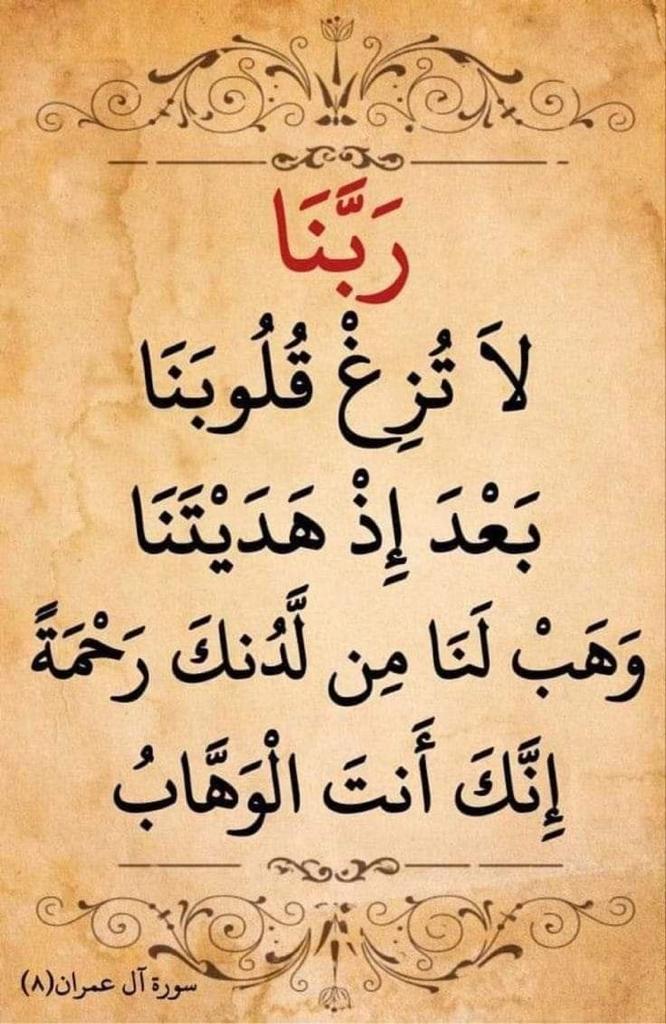 رَبَّنَا
لاَ تُزِغْ قُلُوبَنَا
بَعْدَ إِذْ هَدَيْتَنَا
وَهَبْ لَنَا مِن لَّدُنكَ رَحْمَةً
إِنَّكَ أَنتَ الْوَهَّابُ
سورة آل عمران(٨)